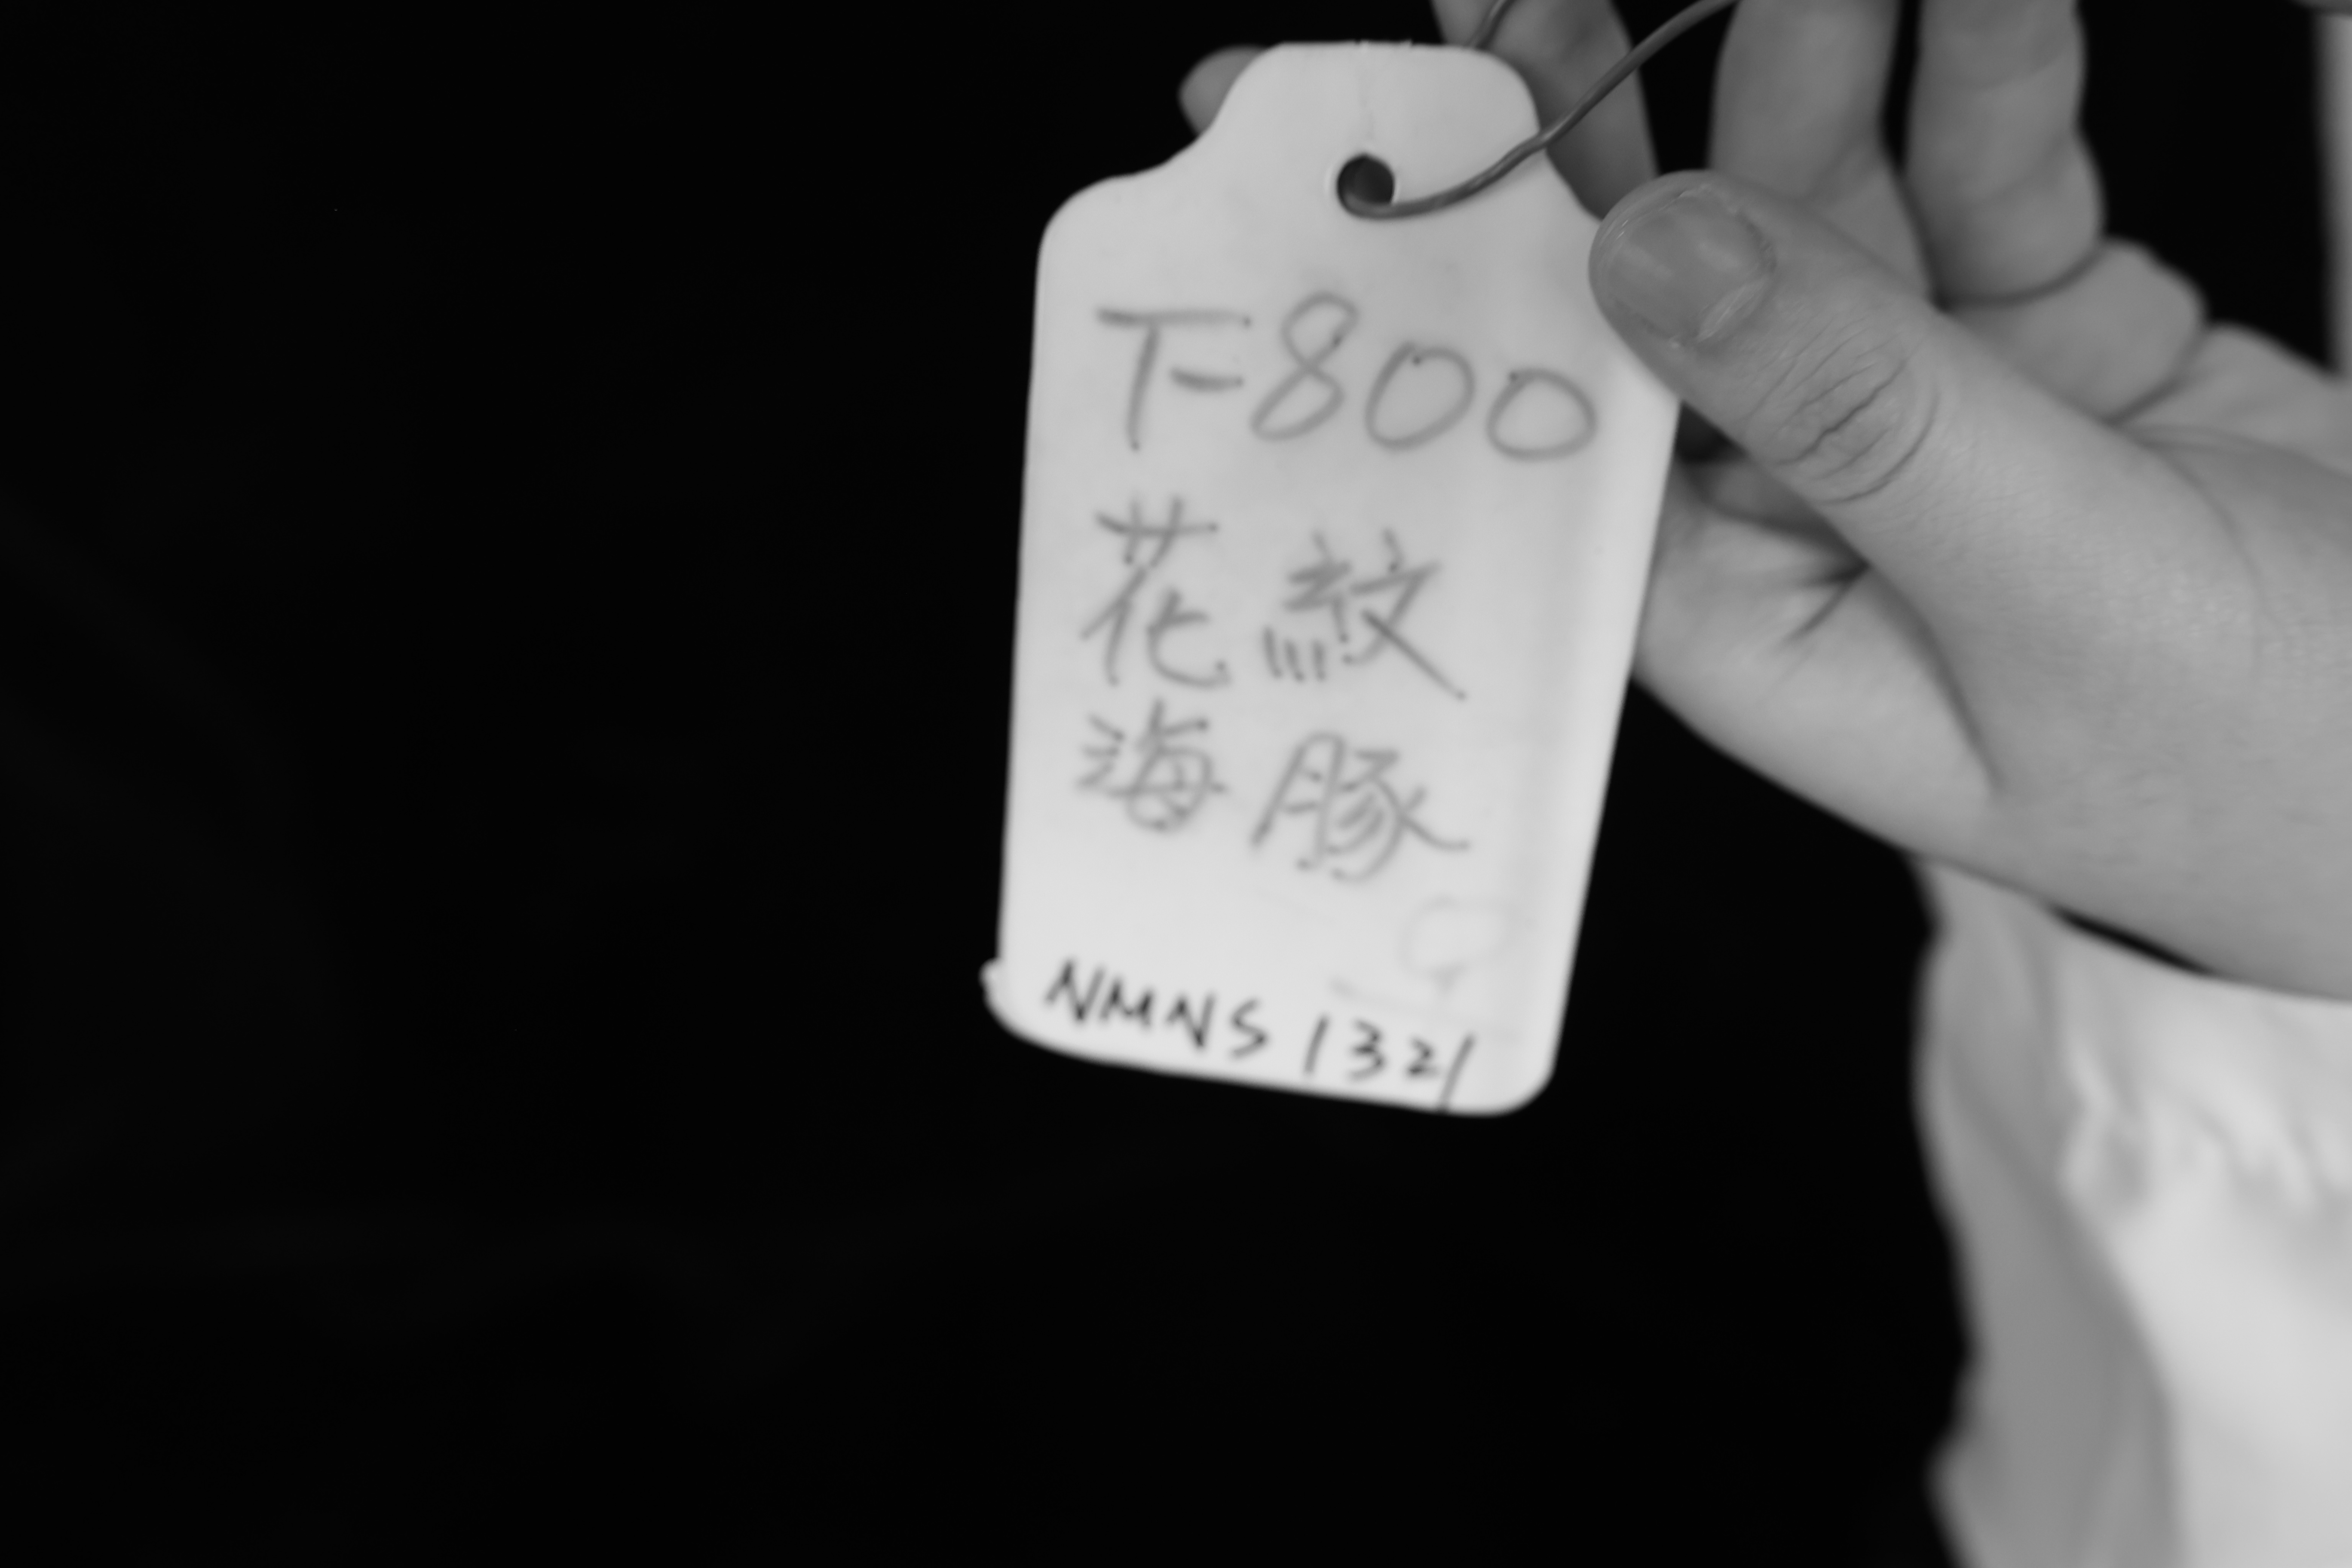 T-800
花紋
海豚
NMNS 1321